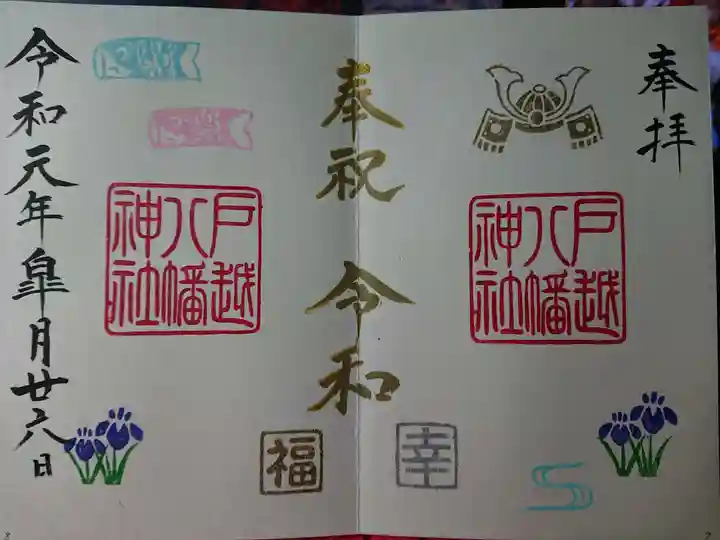 奉拝
戸越
八幡
神社
幸
奉祝 令和
福
戸越
八幡
神社
令和元年皐月廿六日